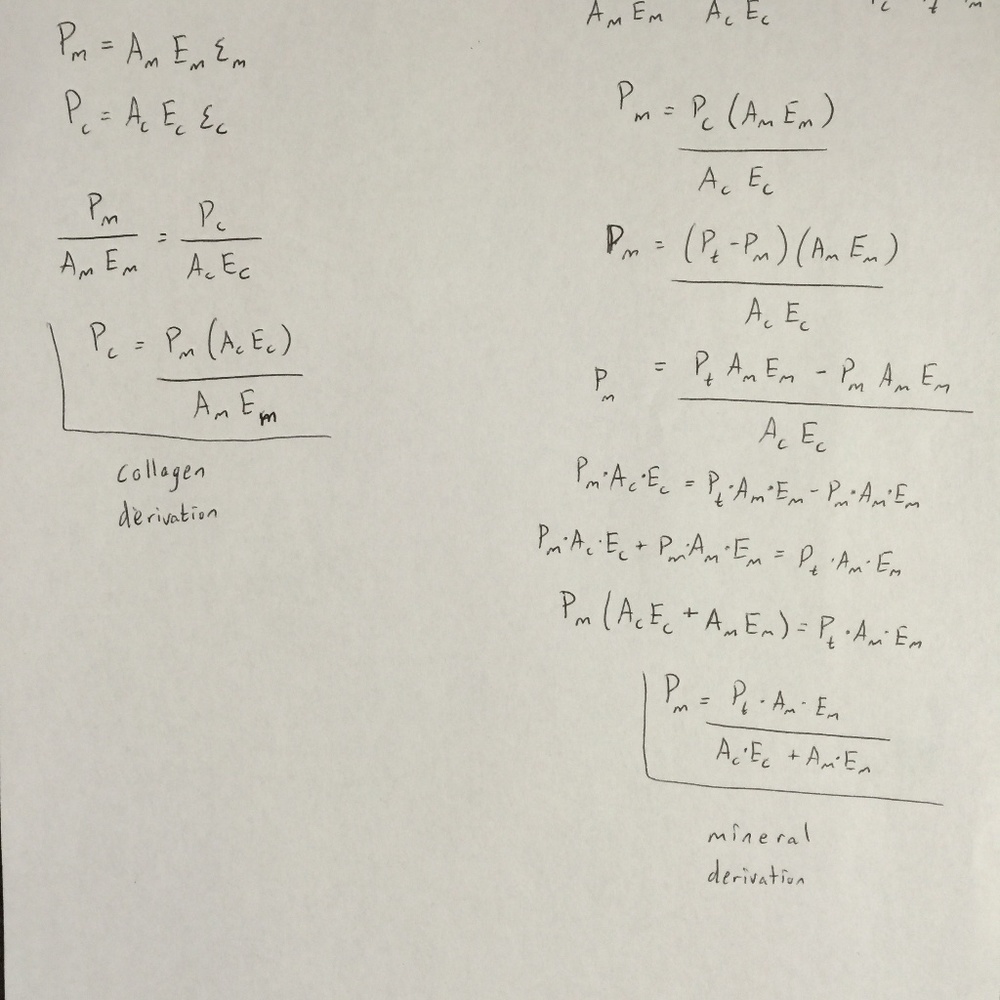 P_m = A_m E_m ε_m
P_c = A_c E_c ε_c
P_m / A_m E_m = P_c / A_c E_c
P_c = P_m (A_c E_c) / A_m E_m
collagen
derivation
A_m E_m A_c E_c
P_m = P_c (A_m E_m) / A_c E_c
P_m = (P_t - P_m)(A_m E_m) / A_c E_c
P_m = P_t A_m E_m - P_m A_m E_m / A_c E_c
P_m·A_c·E_c = P_t·A_m·E_m - P_m·A_m·E_m
P_m·A_c·E_c + P_m·A_m·E_m = P_t·A_m·E_m
P_m (A_c E_c + A_m E_m) = P_t·A_m·E_m
P_m = P_t·A_m·E_m / A_c·E_c + A_m·E_m
mineral
derivation